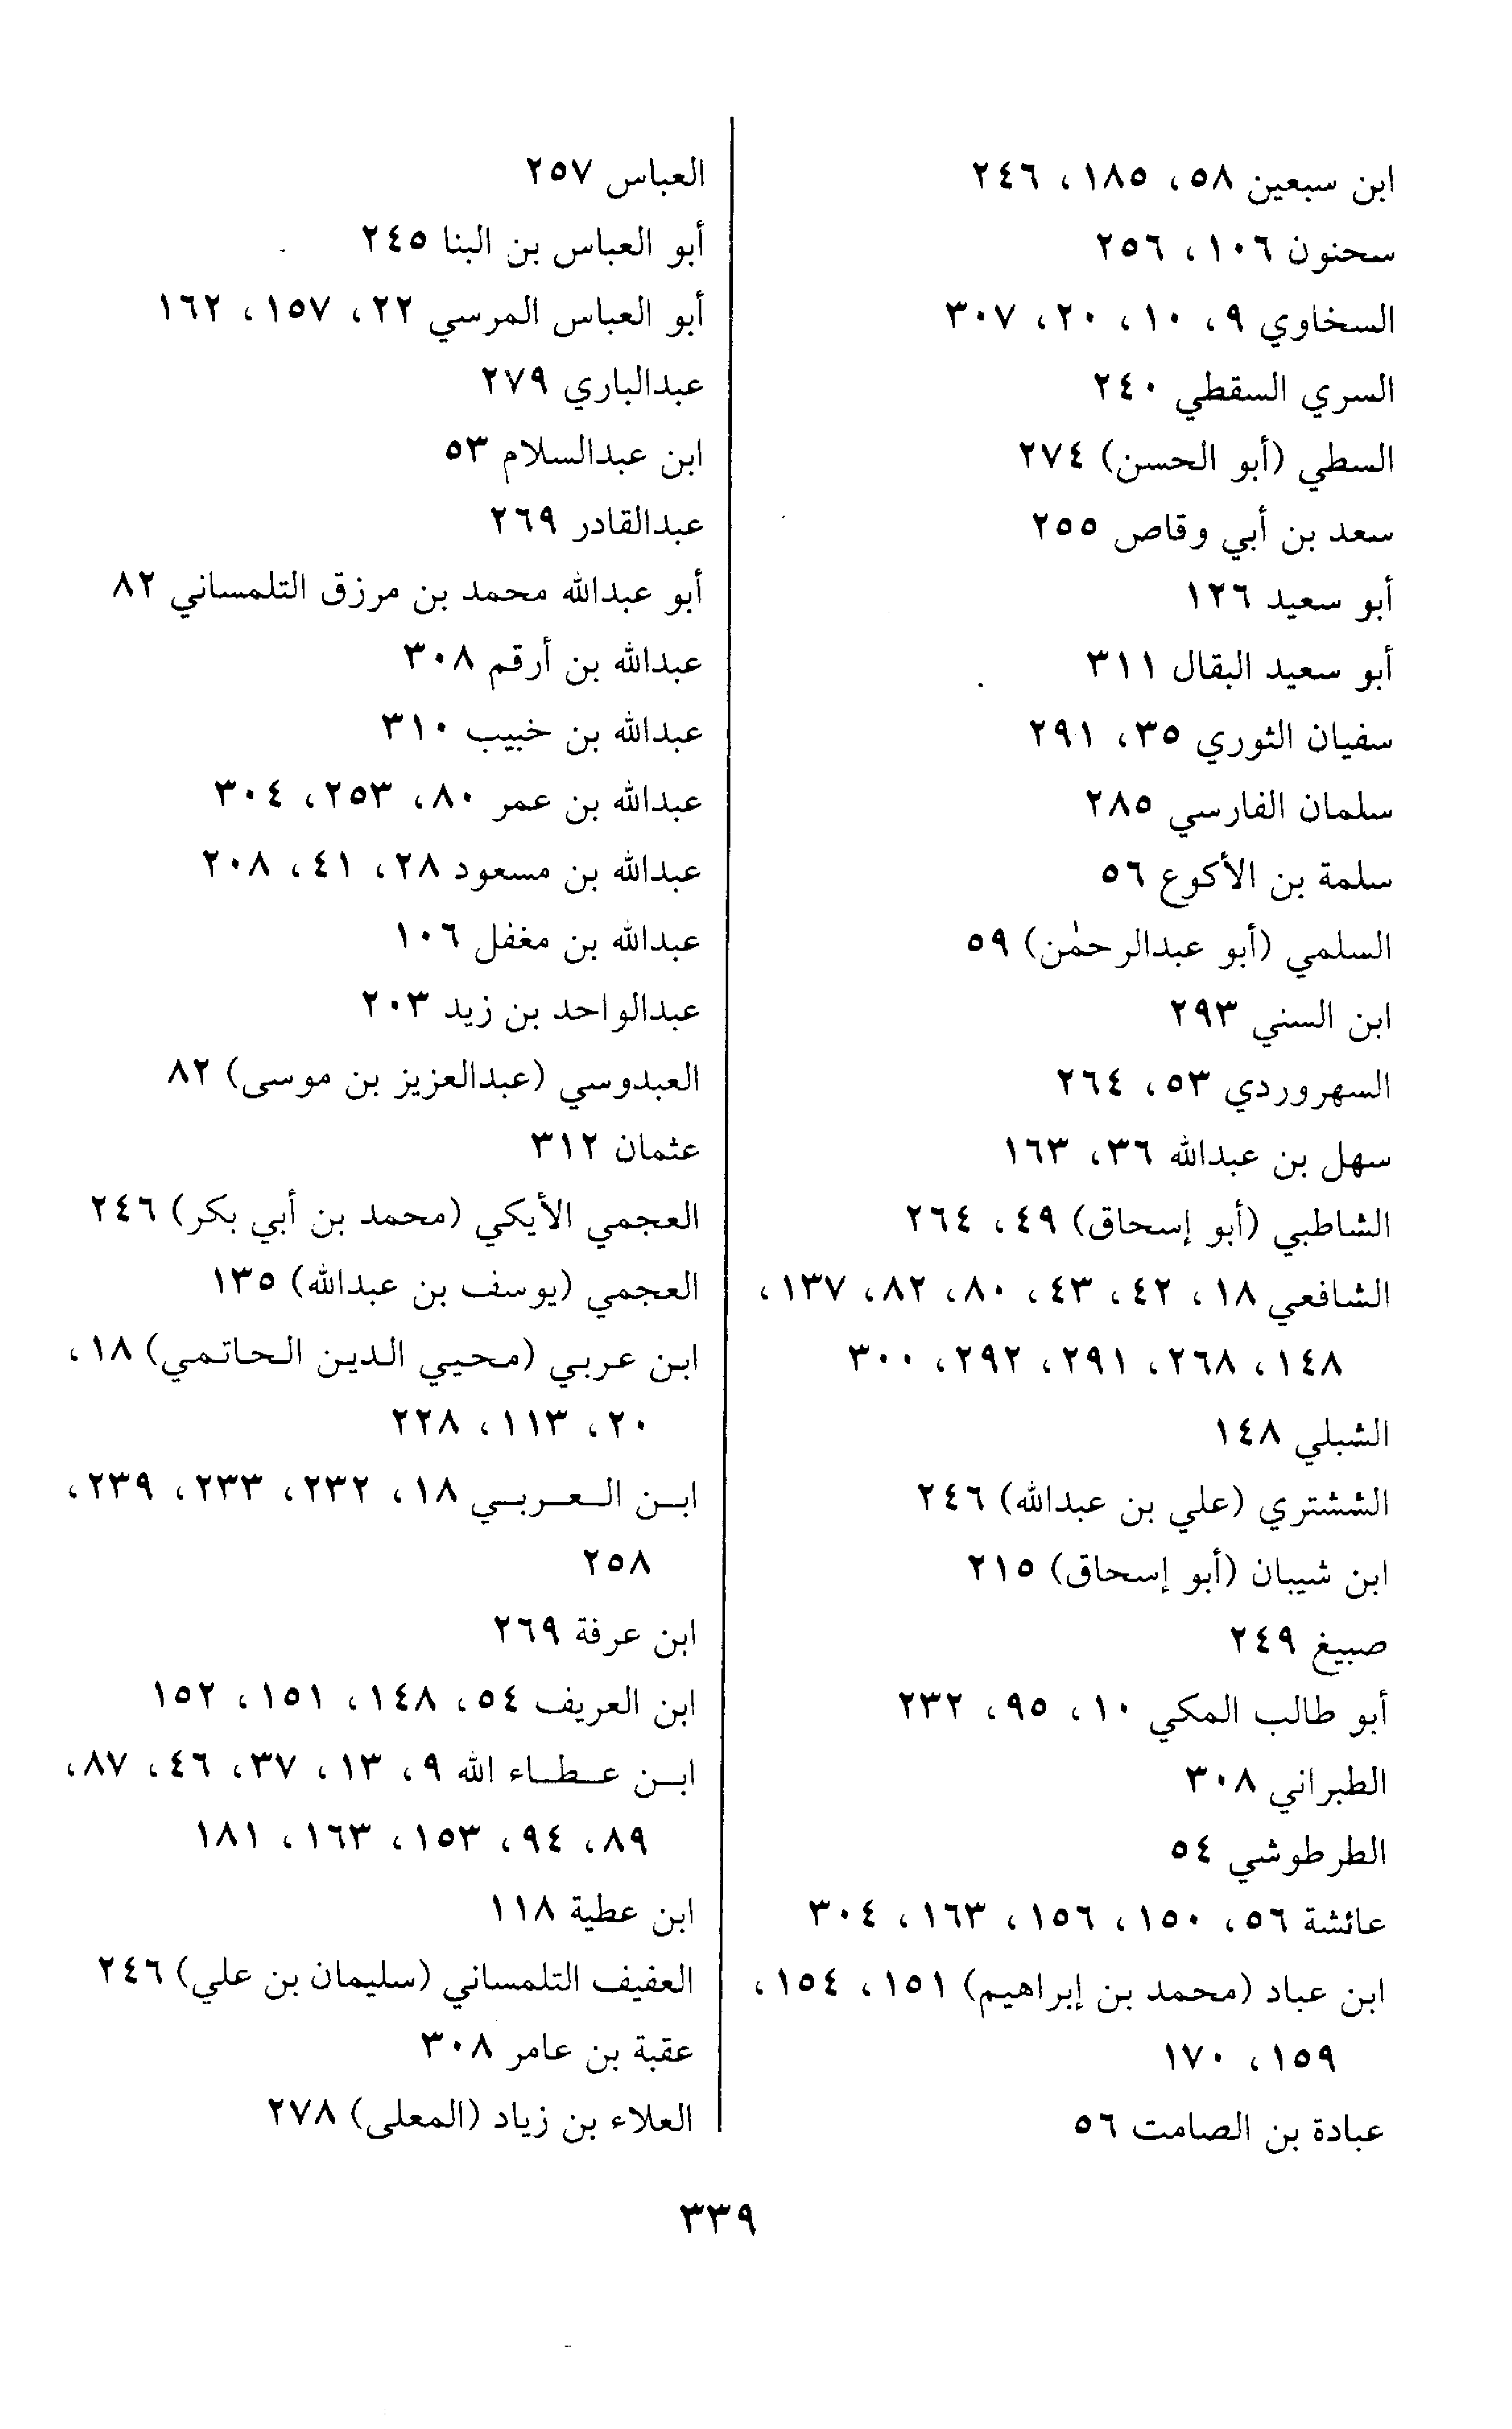 ابن سبعين ٥٨، ١٨٥، ٢٤٦
سحنون ١٠٦، ٢٥٦
السخاوي ٩، ١٠، ٢٠، ٣٠٧
السري السقطي ٢٤٠
السطي (أبو الحسن) ٢٧٤
سعد بن أبي وقاص ٢٥٥
أبو سعيد ١٢٦
أبو سعيد البقال ٣١١
سفيان الثوري ٣٥، ٢٩١
سلمان الفارسي ٢٨٥
سلمة بن الأكوع ٥٦
السلمي (أبو عبدالرحمٰن) ٥٩
ابن السني ٢٩٣
السهروردي ٥٣، ٢٦٤
سهل بن عبدالله ٣٦، ١٦٣
الشاطبي (أبو إسحاق) ٤٩، ٢٦٤
الشافعي ١٨، ٤٢، ٤٣، ٨٠، ٨٢، ١٣٧،
١٤٨، ٢٦٨، ٢٩١، ٢٩٢، ٣٠٠
الشبلي ١٤٨
الششتري (علي بن عبدالله) ٢٤٦
ابن شيبان (أبو إسحاق) ٢١٥
صبيغ ٢٤٩
أبو طالب المكي ١٠، ٩٥، ٢٣٢
الطبراني ٣٠٨
الطرطوشي ٥٤
عائشة ٥٦، ١٥٠، ١٥٦، ١٦٣، ٣٠٤
ابن عباد (محمد بن إبراهيم) ١٥١، ١٥٤،
١٥٩، ١٧٠
عبادة بن الصامت ٥٦
العباس ٢٥٧
أبو العباس بن البنا ٢٤٥
أبو العباس المرسي ٢٢، ١٥٧، ١٦٢
عبدالباري ٢٧٩
ابن عبدالسلام ٥٣
عبدالقادر ٢٦٩
أبو عبدالله محمد بن مرزق التلمساني ٨٢
عبدالله بن أرقم ٣٠٨
عبدالله بن خبيب ٣١٠
عبدالله بن عمر ٨٠، ٢٥٣، ٣٠٤
عبدالله بن مسعود ٢٨، ٤١، ٢٠٨
عبدالله بن مغفل ١٠٦
عبدالواحد بن زيد ٢٠٣
العبدوسي (عبدالعزيز بن موسى) ٨٢
عثمان ٣١٢
العجمي الأيكي (محمد بن أبي بكر) ٢٤٦
العجمي (يوسف بن عبدالله) ١٣٥
ابن عربي (محيي الدين الحاتمي) ١٨،
٢٠، ١١٣، ٢٢٨
ابن العربي ١٨، ٢٣٢، ٢٣٣، ٢٣٩،
٢٥٨
ابن عرفة ٢٦٩
ابن العريف ٥٤، ١٤٨، ١٥١، ١٥٢
ابن عطاء الله ٩، ١٣، ٣٧، ٤٦، ٨٧،
٨٩، ٩٤، ١٥٣، ١٦٣، ١٨١
ابن عطية ١١٨
العفيف التلمساني (سليمان بن علي) ٢٤٦
عقبة بن عامر ٣٠٨
العلاء بن زياد (المعلى) ٢٧٨
٣٣٩